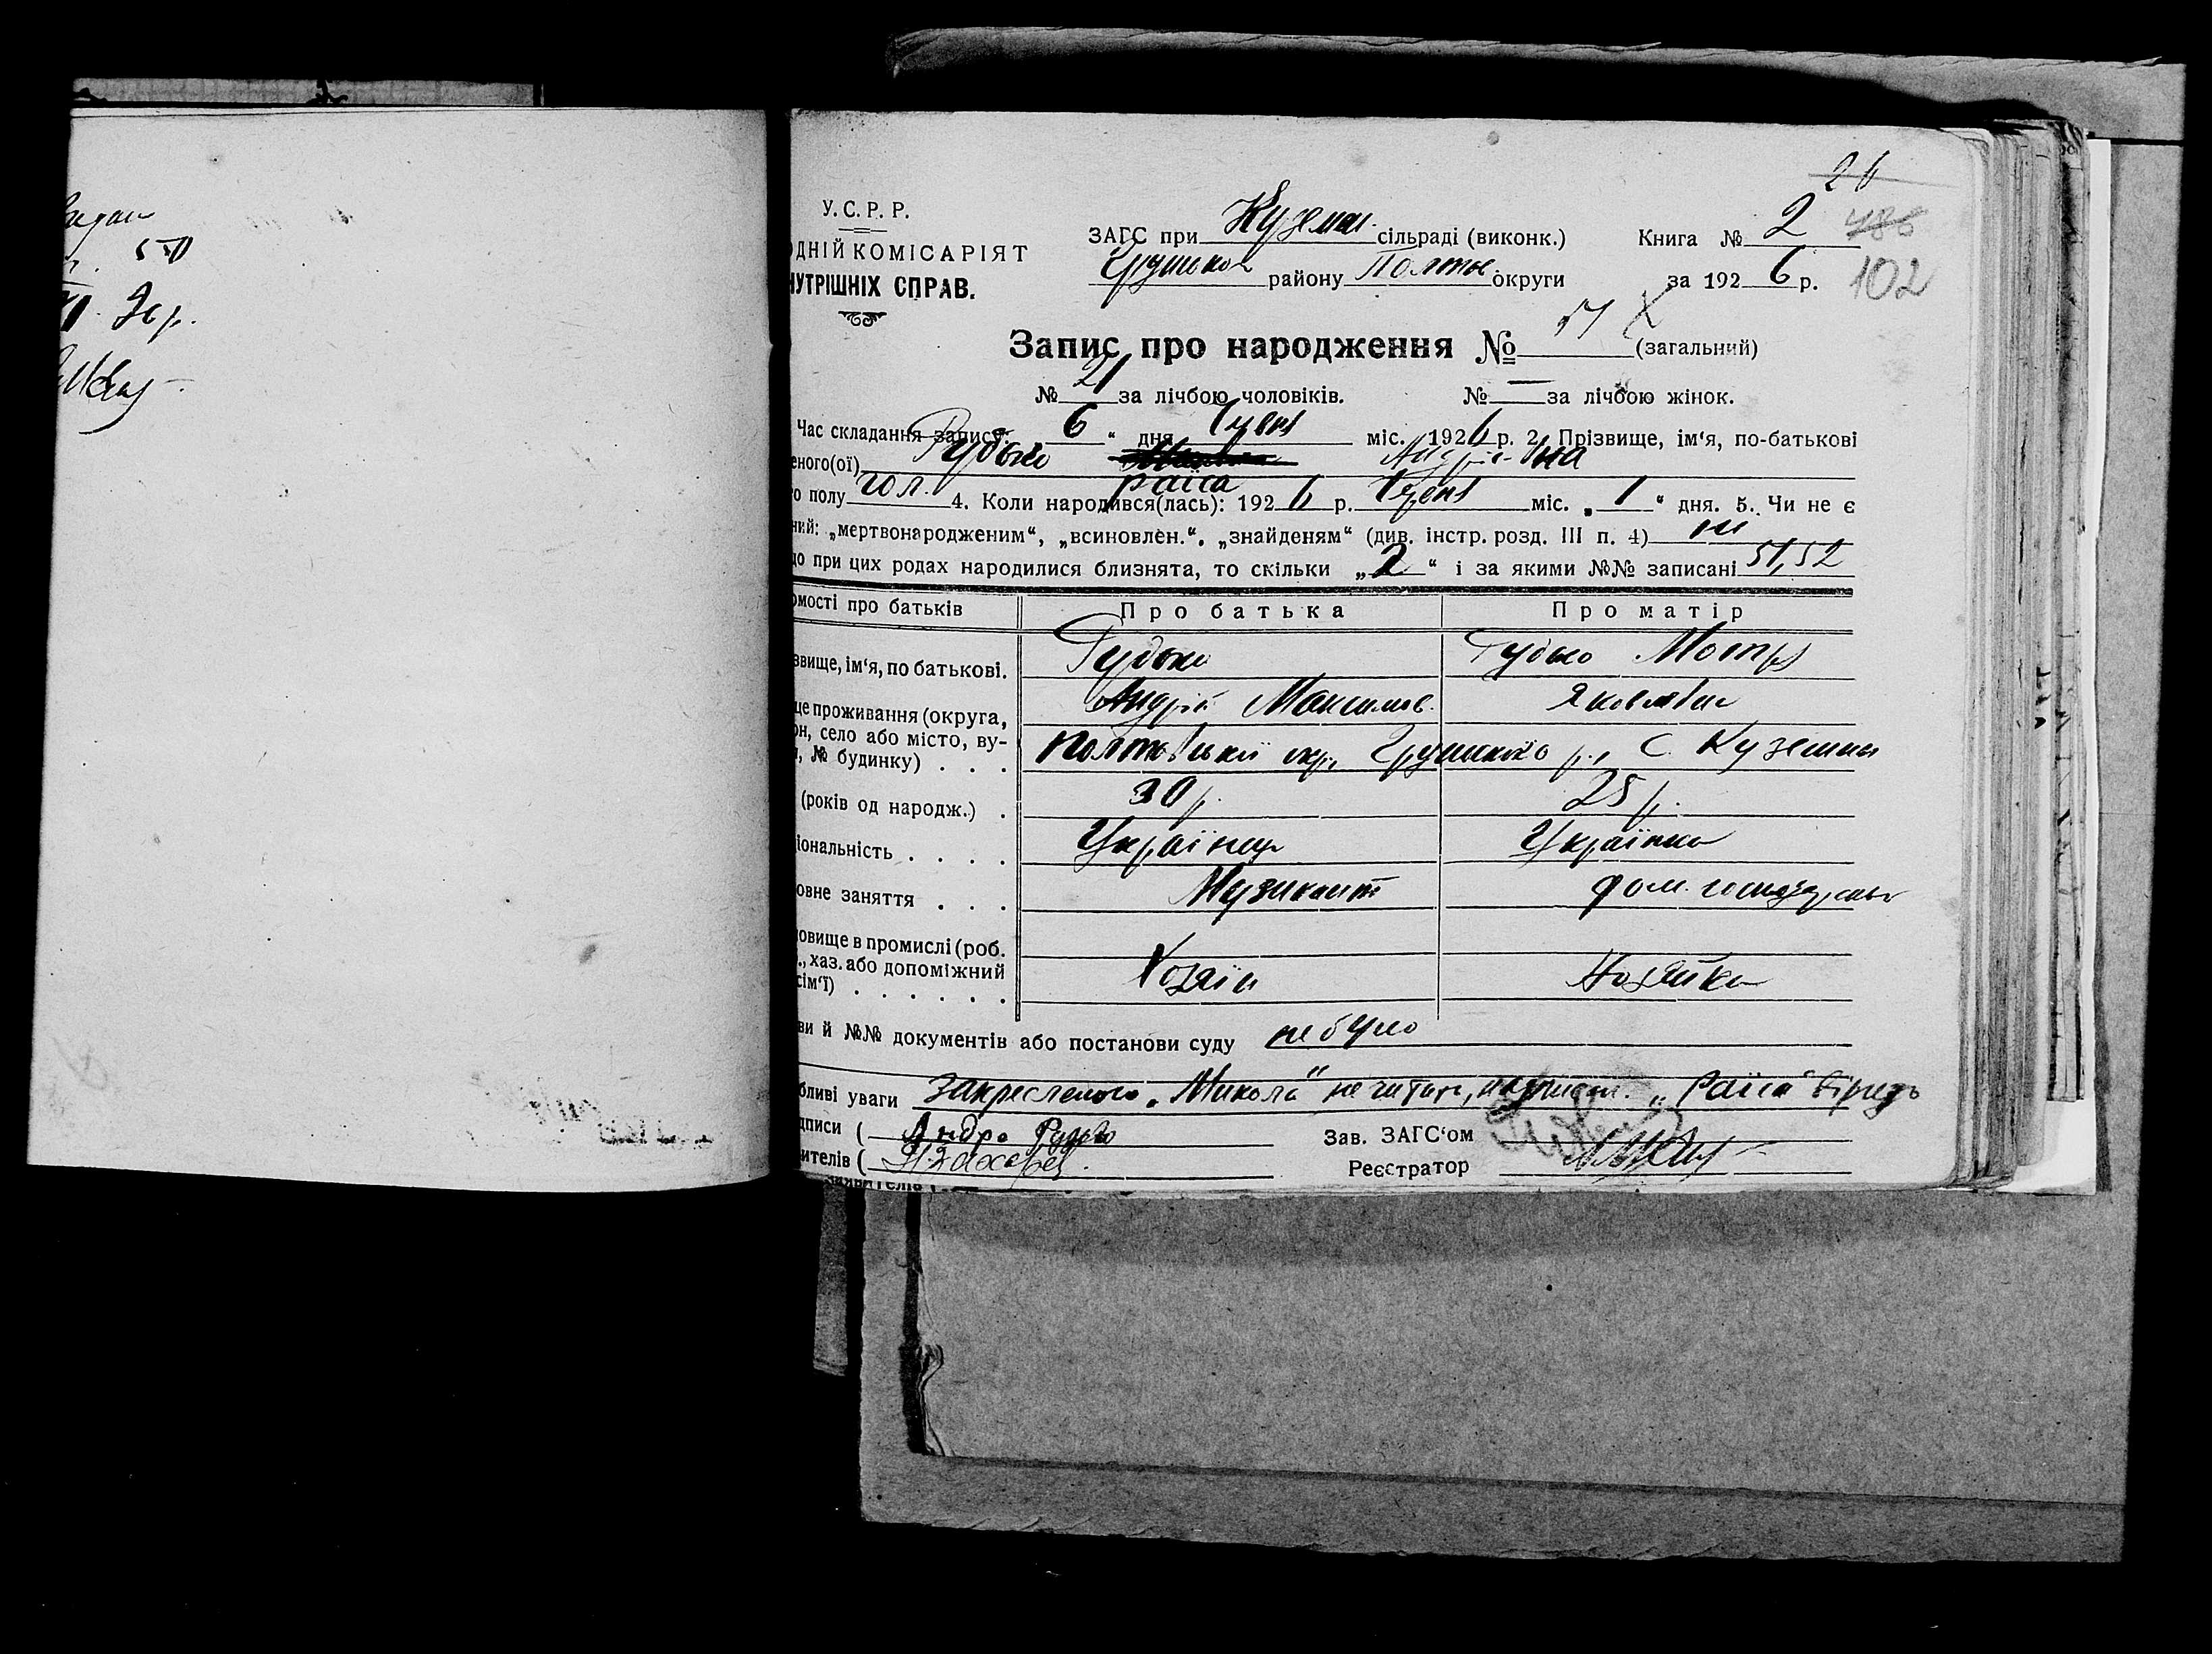 50
У. С. Р. Р.
ОДНІЙ КОМІСАРІЯТ
НУТРІШНІХ СПРАВ.
26
ЗАГС при Кузем. сільраді (виконк.)
Книга № 2
486
району Полтав. округи
за 1926 р.
102
Запис про народження № 51 (загальний)
№ 21 за лічбою чоловіків. № — за лічбою жінок.
Час складання запису: 6 “ дня Червн міс. 1926 р. 2. Прізвище, ім'я, по-батькові
еного(ої) Рудько Раїса Андріївна
о полу чол. 4. Коли народився(лась): 1926 р. Червн міс. „ 1 “ дня. 5. Чи не є
ний: „мертвонародженим“, „всиновлен.“, „знайденям“ (див. інстр. розд. III п. 4) ні
що при цих родах народилися близнята, то скільки „2“ і за якими №№ записані 51, 52
омості про батьків
Про батька
Про матір
звище, ім'я, по батькові.
Рудько
Рудько Мотря
Андрій Максимов.
Яковлівна
це проживання (округа,
он, село або місто, ву-
, № будинку) . . .
Полтавської окр., Грунського р., с. Куземин
(років од народж.) .
30 р.
25 р.
іональність . . . .
Українец
Українка
овне заняття . . .
Музикант
дом. господарство
овище в промислі (роб.
., хаз. або допоміжний
сім'ї) . . . . . .
Хозяїн
Хозяйка
ви й №№ документів або постанови суду не було
бливі уваги Закресленого „Микола“ не читать, надписан. „Раїса“ вірить
дписи ( Андро Рудько
Зав. ЗАГС'ом
ителів ( Захарев.
Реєстратор